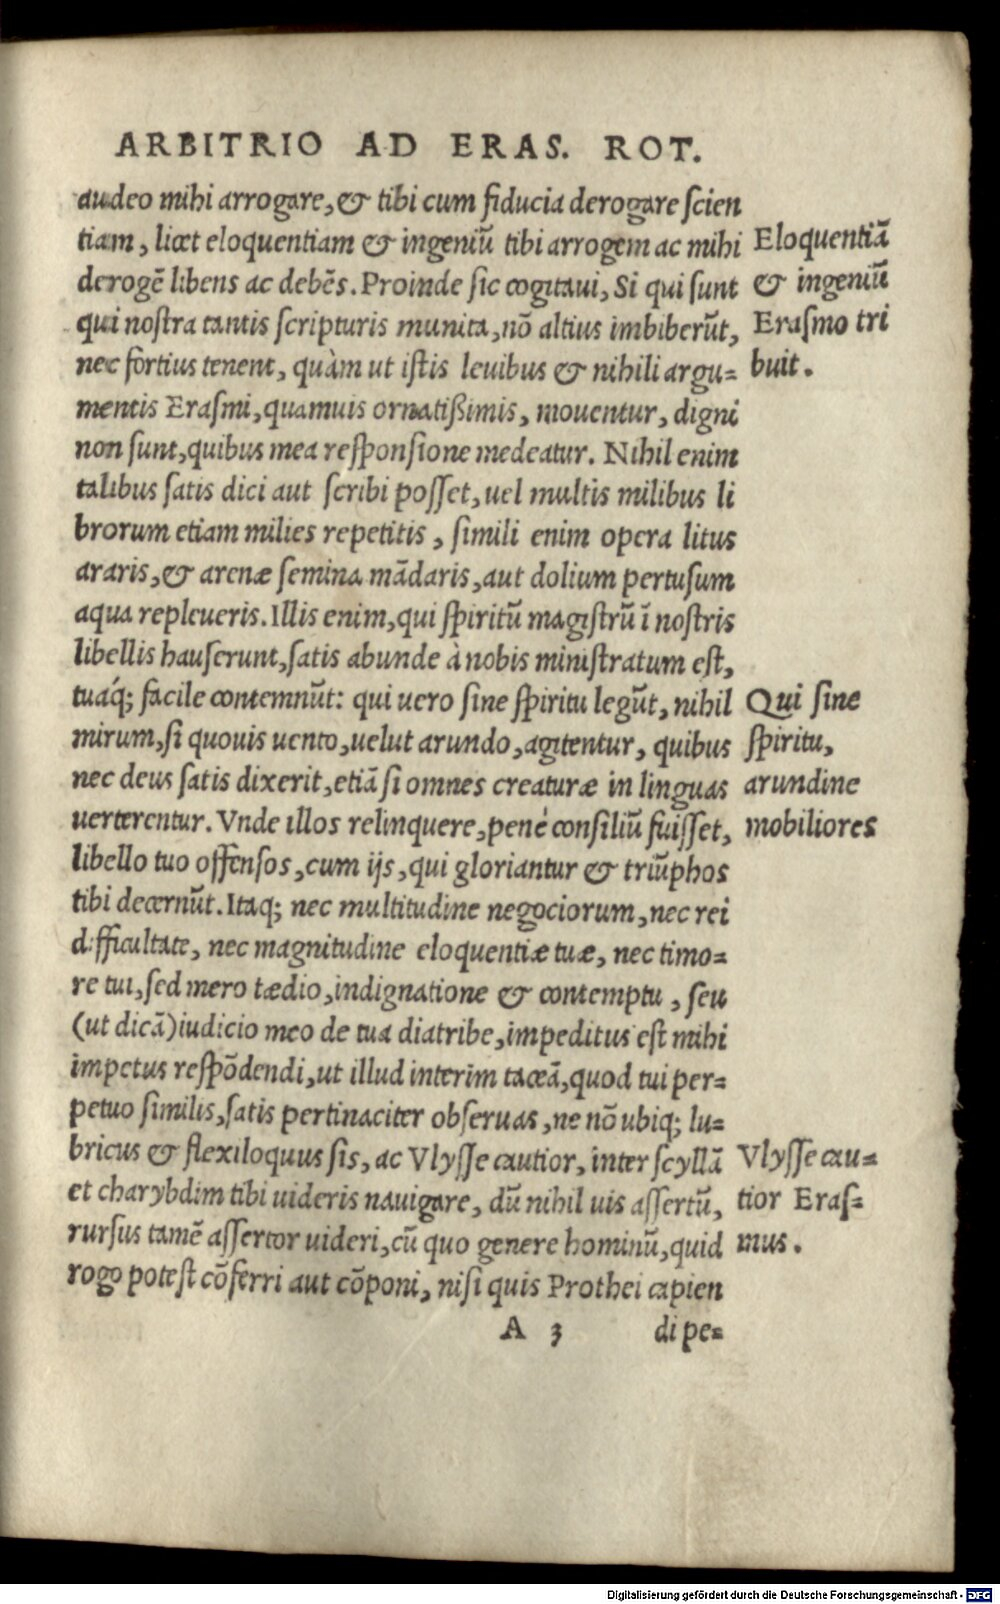 ARBITRIO AD ERAS. ROT.
audeo mihi arrogare, & tibi cum fiducia derogare ſcien
tiam, licet eloquentiam & ingeniū tibi arrogem ac mihi
derogē libens ac debēs. Proinde ſic cogitaui, Si qui ſunt
qui noſtra tantis ſcripturis munita, nō altius imbiberūt,
nec fortius tenent, quàm ut iſtis leuibus & nihili argu=
mentis Eraſmi, quamuis ornatißimis, mouentur, digni
non ſunt, quibus mea reſponſione medeatur. Nihil enim
talibus ſatis dici aut ſcribi poſſet, uel multis milibus li
brorum etiam milies repetitis, ſimili enim opera litus
araris, & arenæ ſemina mādaris, aut dolium pertuſum
aqua repleueris. Illis enim, qui ſpiritū magiſtrū ī noſtris
libellis hauſerunt, ſatis abunde à nobis miniſtratum eſt,
tuáq; facile contemnūt: qui uero ſine ſpiritu legūt, nihil
mirum, ſi quouis uento, uelut arundo, agitentur, quibus
nec deus ſatis dixerit, etiā ſi omnes creaturæ in linguas
uerterentur. Vnde illos relinquere, penè conſiliū fuiſſet,
libello tuo offenſos, cum ijs, qui gloriantur & triūphos
tibi decernūt. Itaq; nec multitudine negociorum, nec rei
difficultate, nec magnitudine eloquentiæ tuæ, nec timo=
re tui, ſed mero tædio, indignatione & contemptu, ſeu
(ut dicā) iudicio meo de tua diatribe, impeditus eſt mihi
impetus reſpōdendi, ut illud interim taceā, quod tui per=
petuo ſimilis, ſatis pertinaciter obſeruas, ne nō ubiq; lu=
bricus & flexiloquus ſis, ac Vlyſſe cautior, inter ſcyllā
et charybdim tibi uideris nauigare, dū nihil uis aſſertū,
rurſus tamē aſſertor uideri, cū quo genere hominū, quid
rogo poteſt cōferri aut cōponi, niſi quis Prothei capien
A 3 di pe=
Eloquentiā
& ingeniū
Eraſmo tri
buit.
Qui ſine
ſpiritu,
arundine
mobiliores
Vlyſſe cau=
tior Eraſ=
mus.
Digitalisierung gefördert durch die Deutsche Forschungsgemeinschaft - DFG